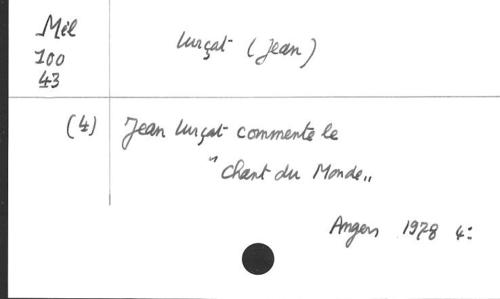 Mél
100
43
Lurçat (Jean)
(4) Jean Lurçat commente le
"Chant du Monde"
Angers 1978 4: